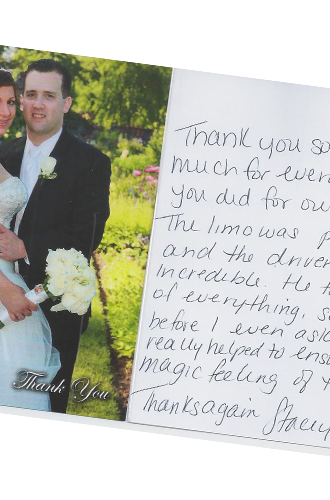 Thank you so
much for ever
you did for ou
The limo was p
and the driver
incredible. He t
of everything, s
before I even ask
really helped to ens
magic feeling of
Thanks again Stacey
Thank You